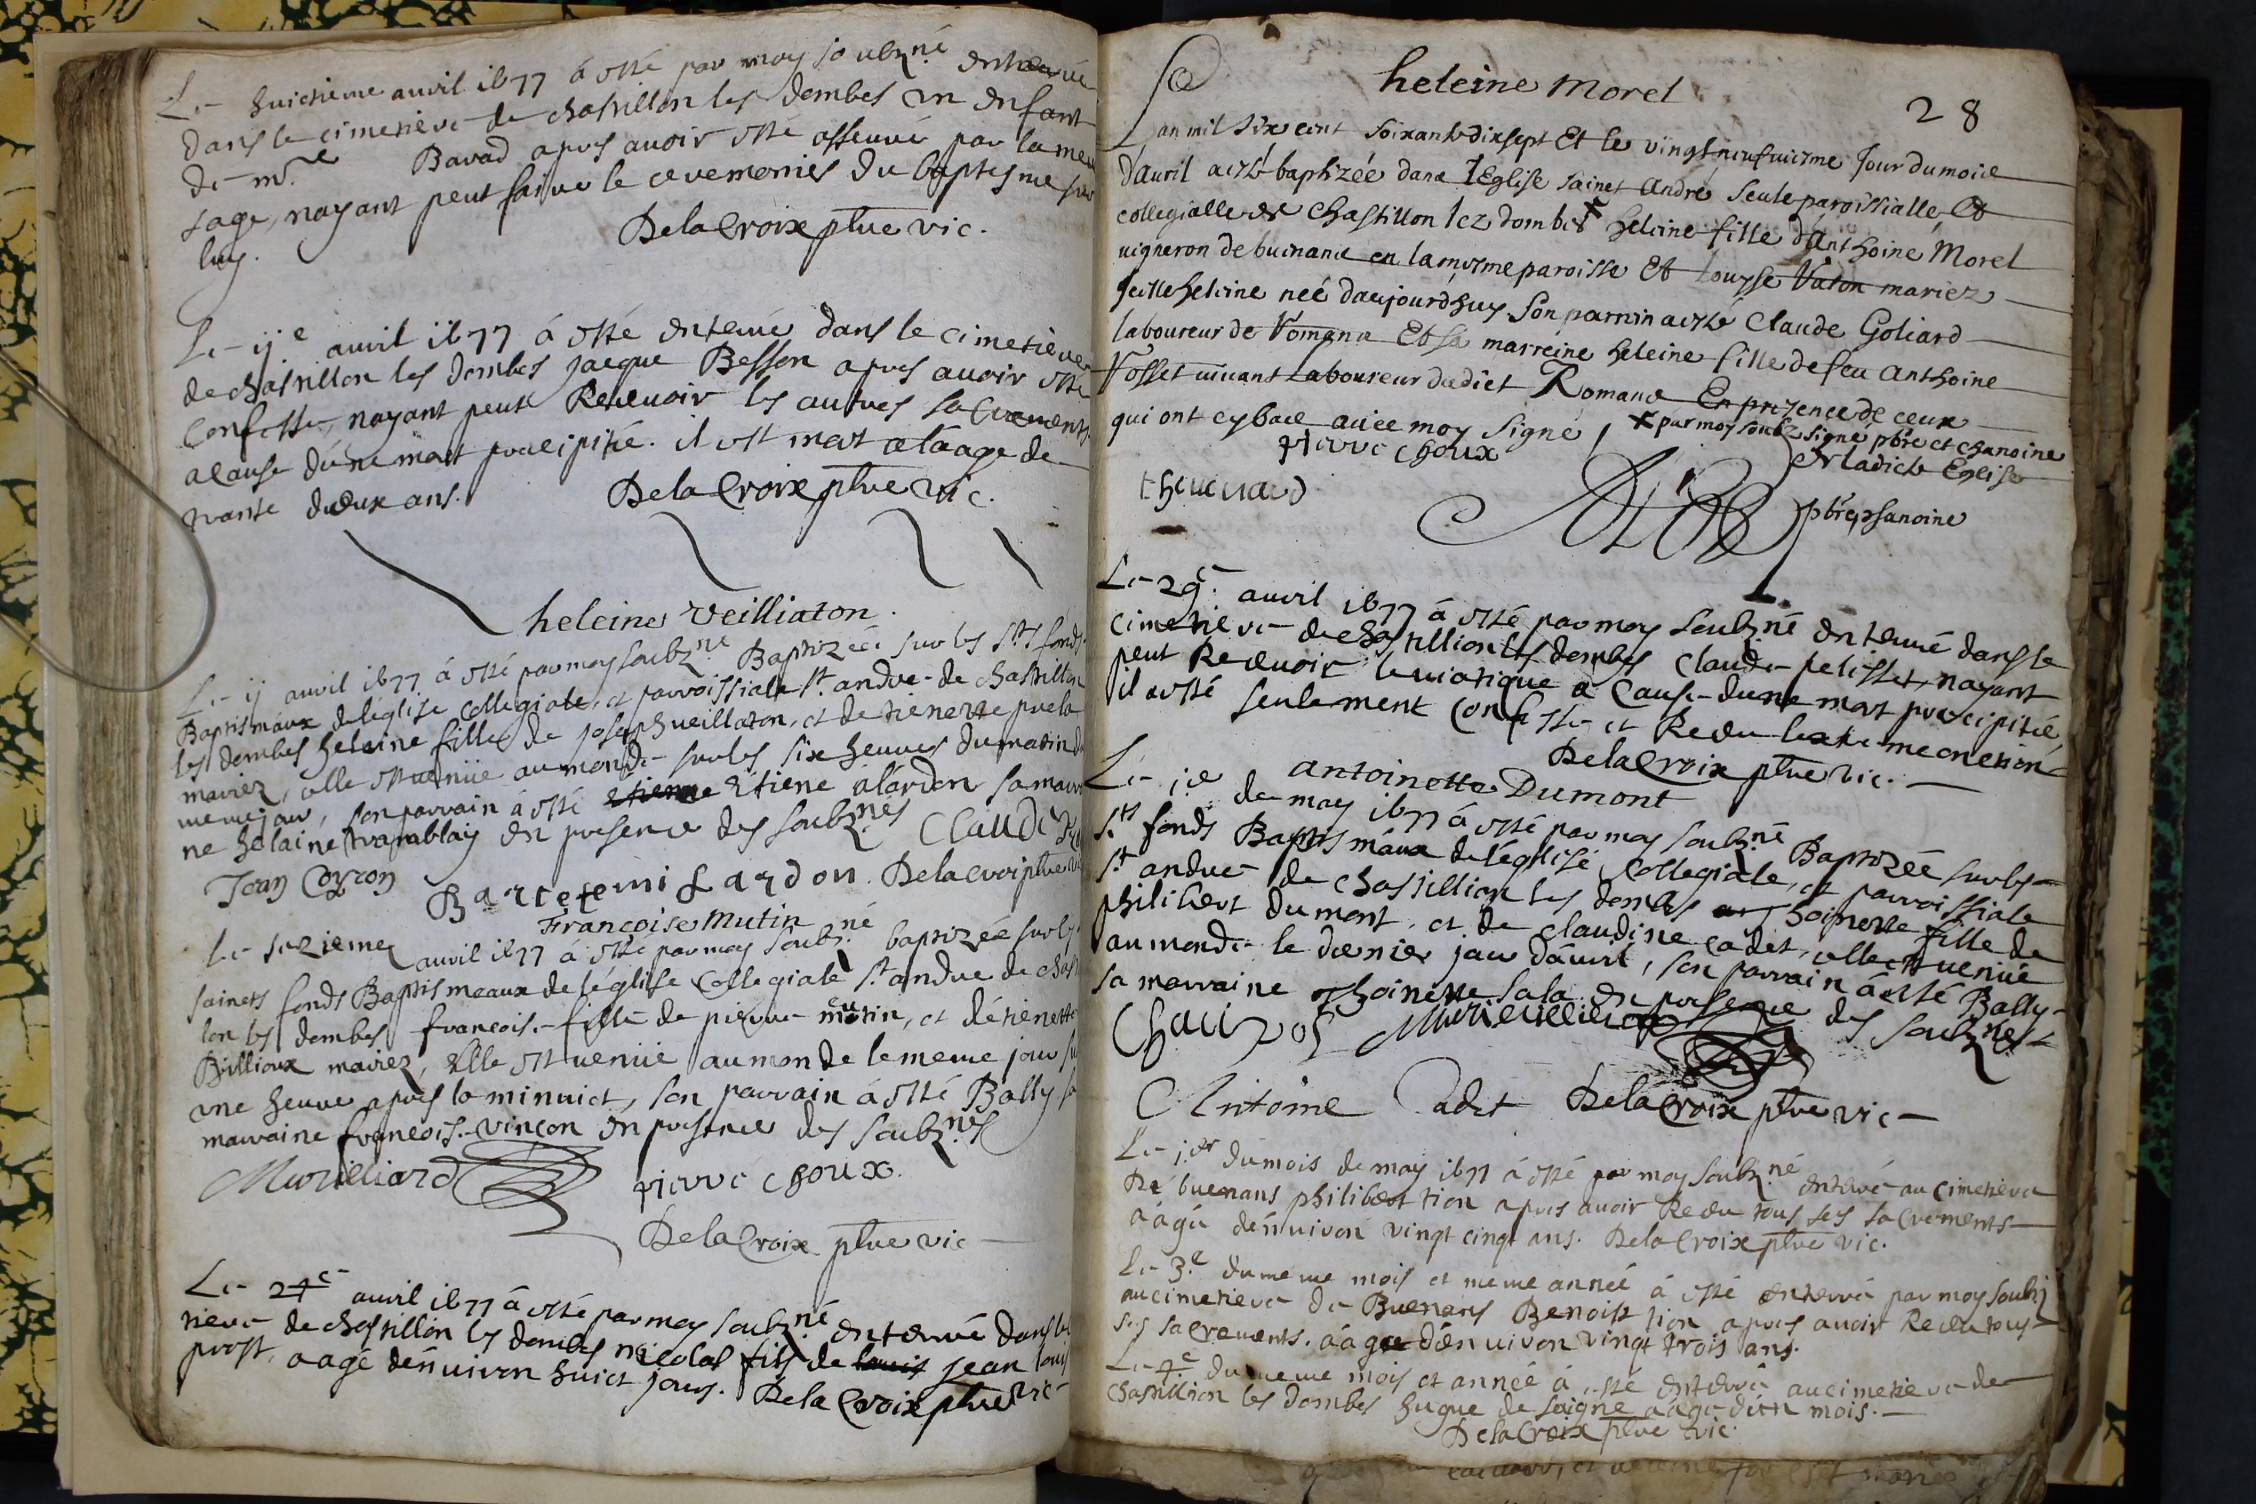 Le huictieme auril 1677 á esté par moy soubz.né enterré
dans le cimetiere de chastillon les dombes un enfant
de mr.e Barad apres auoir esté asseuré par la mere
sage, nayant peut faire le ceremonies du baptesme sur
luy.
Delacroix ptre vic.
Le ij.e auril 1677 á esté enterré dans le cimetiere
de chastillon les dombes Jacque Besson apres auoir esté
confessé, nayant peut Receuoir les autres sacrements
acause dúne mort precipitée. il est mort a láage de
trante deux ans. Delacroix ptre vic.
heleine veilliaton.
Le ij auril 1677 á esté par moy soubz.né Baptizée sur les Sts fonds
Baptismaux de léglise collegiale, et parroissiale St. andre de chastillon
les dombes heleine fille de joseph ueillaton, et de tienette
mariez, elle est uenüe au monde sur les six heures du matin
meme jour, son parrain á esté etienne Etiene alardon sa marrai
ne helaine tramblay en presence des soubz.nés Claude
Jean Corron Bartelemi Lardon. Delacroix ptre
Françoise Mutin
Le sezieme auril 1677 á esté par moy soubz.né baptizée sur les
saincts fonds Baptismeaux de léglise collegiale St. andre de chastil
lon les dombes francoise fille de pierre mutin, et détienette
Billioux mariez, elle est uenüe au monde le meme jour
une heure apres la minuict, son parrain á esté Bally sa
marraine francoise vincon en presence des soubz.nés
Murilliard pierre choux.
Delacroix ptre vic
Le 24e auril 1677 á esté par moy soubz.né enterré dans le
tiere de chastillon les dombes nicolas fils de louis jean louis
prost, aagé dénuiron huict jours. Delacroix ptre vic
heleine Morel
28
Lan mil six cent soixante dix sept Et le vingt neufuieme Jour du mois
d'auril a esté baptizée dans l'Eglise sainct André seule paroissialle Et
collegialle de Chastillon lez dombes * heleine fille d'Anthoine Morel
uigneron de buenans en la mesme paroisse Et Louyse Vaton mariez
Jcelle heleine neé d'aujourdhuy Son parrin a esté Claude Goliard
laboureur de Romans Et sa marreine heleine fille de feu Anthoine
Vosset viuant Laboureur dudict Romans En presence de ceux
qui ont cy bas auec moy signé / * par moy soubz signé pbre et chanoine
de ladicte Eglise
pierre choux
theuenard
pbre chanoine
Le 29e. auril 1677 á esté par moy soubz.né enterré dans le
cimetiere de chastillion les dombes Claude pelisset, nayant
peut Receuoir le uiatique a cause dune mort precipitée,
il a esté seulement confessé et Receu lextreme onction
Delacroix ptre vic.
antoinette Dumont
Le j.er de may 1677 á esté par moy soubz.né Baptizée sur les
Sts fonds Baptismáux de léglise collegiale, et parroissiale
St andre de chastillion les dombes anthoinette fille de
philibert dumont, et de claudine cadet, elle est uenüe
au monde le dernier jour dáuril, son parrain á esté Bally
sa marraine thoinette sala en presence des soubz.nés
Antoine Cadet Delacroix ptre vic
Le j.er du mois de may 1677 á esté par moy soubz.né enterré au cimetiere
De buenans philibert tion apres auoir Receu tous ses sacrements
aagé dénuiron vingt cinq ans. Delacroix ptre vic.
Le 3.e du meme mois et meme année á esté enterré par moy soubz
au cimetiere de Buenans Benoist tion apres auoir Receu tous
ses sacrements. aagé dénuiron vingt trois ans.
Le 4e du meme mois et année á esté enterré au cimetiere de
chastillion les dombes hugue de saigne aagé dún mois.
Delacroix ptre vic.